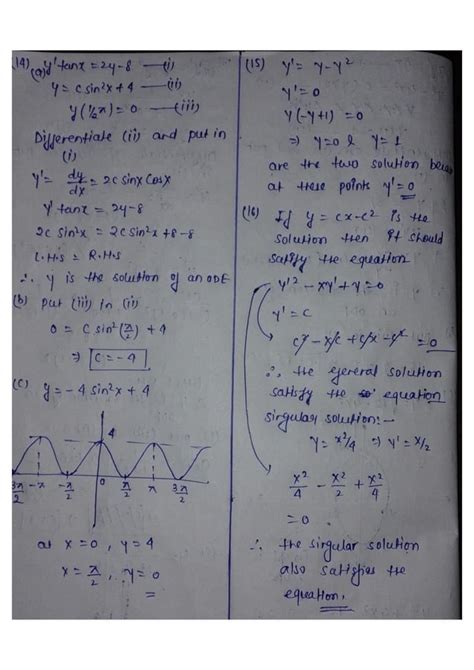 14) (a) y' tanx = 2y-8 —(i)
y = c sin²x + 4 —(ii)
y(½π) = 0 —(iii)
Differentiate (ii) and put in
(i)
y' = dy/dx = 2c sinx cosx
y' tanx = 2y-8
2c sin²x = 2c sin²x + 8-8
L.H.S = R.H.S
∴ y is the solution of an ODE
(b) put (iii) in (ii)
0 = c sin²(π/2) + 4
⇒ c = -4
(c) y = -4 sin²x + 4
4
3π/2 -π -π/2 0 π/2 π 3π/2
at x=0, y=4
x = π/2, y=0
(15) y' = y-y²
y' = 0
y(-y+1) = 0
⇒ y=0 & y=1
are the two solution
at these points y'=0
(16) If y = cx-c² is the
solution then it should
satisfy the equation
y'² - xy' + y = 0
y' = c
c² - xc + cx - c² = 0
∴ the general solution
satisfy the equation
singular solution:-
y = x²/4 ⇒ y' = x/2
x²/4 - x²/2 + x²/4
= 0
∴ the singular solution
also satisfies the
equation.